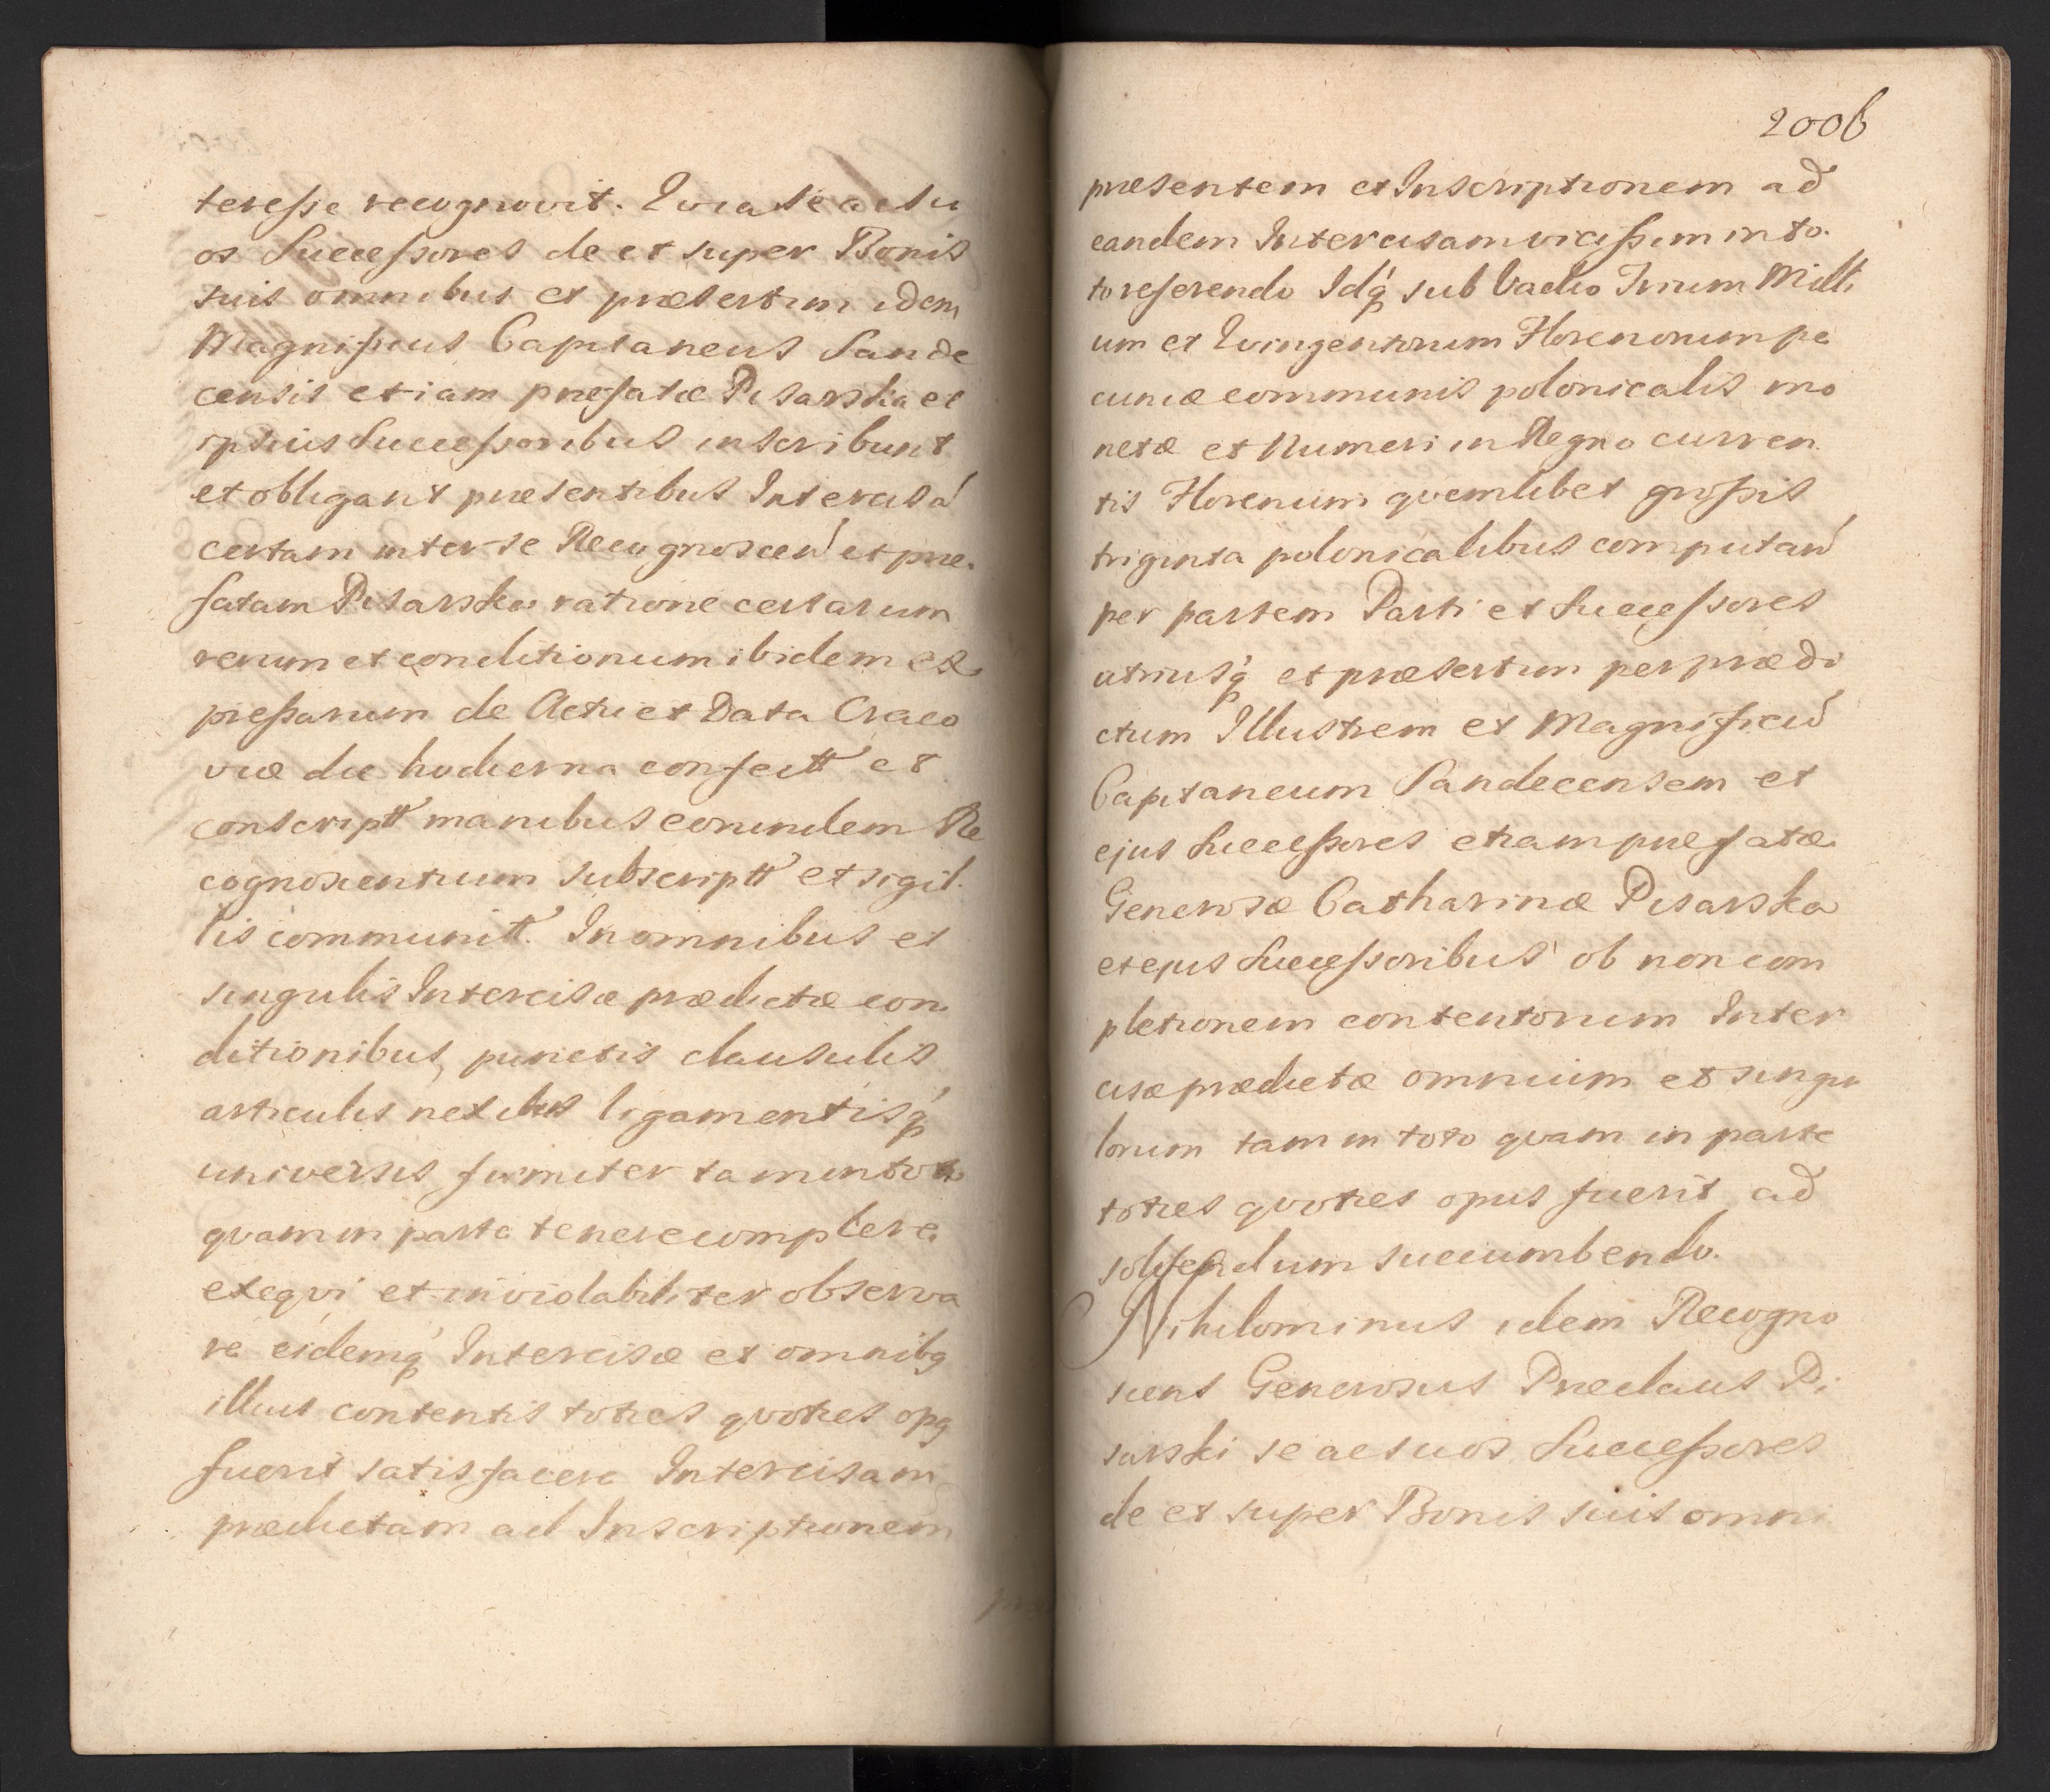 teresse recognovit. Quia se ac su
os Successores de et super Bonis
suis omnibus et præsertim idem
Magnificus Capitaneus Sande
censis etiam præfatæ Pisarska et
ipsius Successoribus inscribunt
et obligant præsentibus Intercisá
certam inter se Recognoscen et præ.
fatam Pisarska ratione certarum
rerum et conditionum ibidem ex
pressarum de Actu et Data Craco
viæ die hodierna confectt et
conscriptt manibus eorundem Re
cognoscentium subscriptt et sigil.
lis communitt. In omnibus et
singulis Intercisæ prædictæ con
ditionibus, punctis clausulis
articulis nexibus ligamentisq́
universis firmiter tam in toto
qvam in parte tenere complere
exeqvi et inviolabiliter observa
re eidemq́ Intercisæ et omnibq
illius contentis toties qvoties opq
fuerit satisfacere Intercisam
prædictam ad Inscriptionem
2006
præsentem et Inscriptionem ad
eandem Intercisam vicissim in to.
to referendo Idq́ sub Vadio Trium Milli
um et Qvingentorum Florenorum pe
cuniæ communis polonicalis mo
netæ et Numeri in Regno curren
tis Florenum qvemlibet grossis
triginta polonicalibus computan
per partem Parti et Successores
utriusq́ et præsertim per prædi
ctum Illustrem et Magnificū
Capitaneum Sandecensem et
ejus Successores etiam præfatæ
Generosæ Catharinæ Pisarska
et ejus Successoribus ob non com
pletionem contentorum Inter
cisæ prædictæ omnium et singu
lorum tam in toto qvam in parte
toties qvoties opus fuerit ad
solvendum succumbendo.
Nihilominus idem Recogno
scens Generosus Præclaus Pi
sarski se ac suos Successores
de et super Bonis suis omni